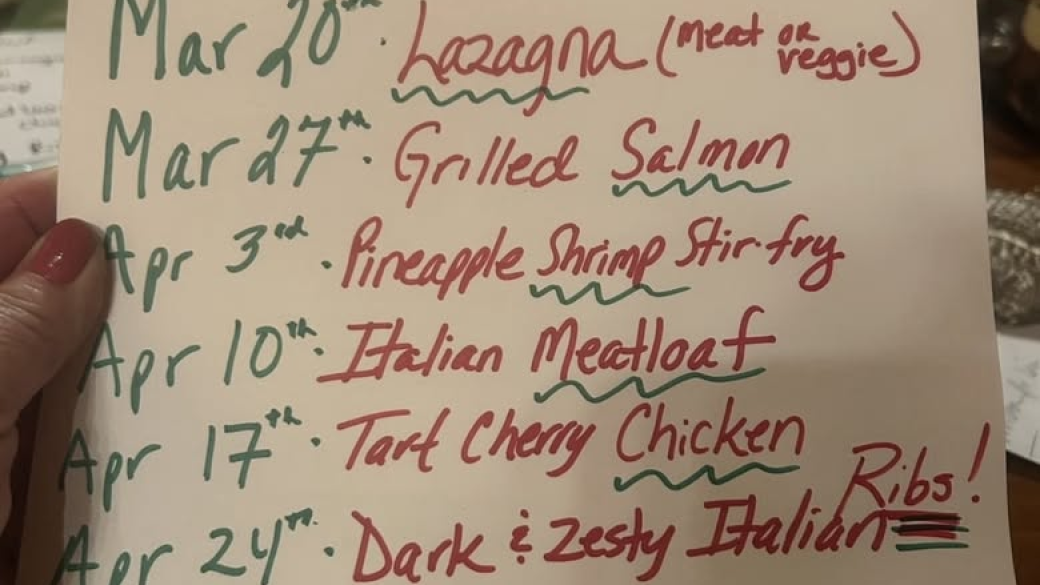 Mar 20th · Lazagna (meat or veggie)
Mar 27th · Grilled Salmon
Apr 3rd · Pineapple Shrimp Stir-fry
Apr 10th · Italian Meatloaf
Apr 17th · Tart Cherry Chicken
Apr 24th · Dark & Zesty Italian Ribs!